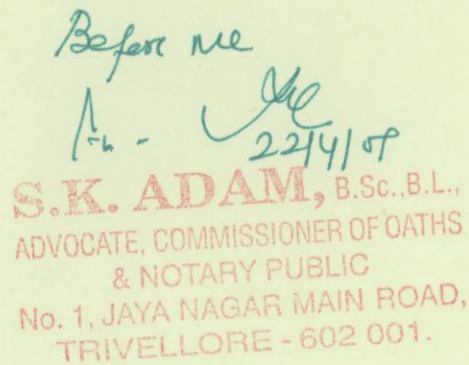 Before me
22/4/09
S.K. ADAM, B.Sc.,B.L.,
ADVOCATE, COMMISSIONER OF OATHS
& NOTARY PUBLIC
No. 1, JAYA NAGAR MAIN ROAD,
TRIVELLORE - 602 001.